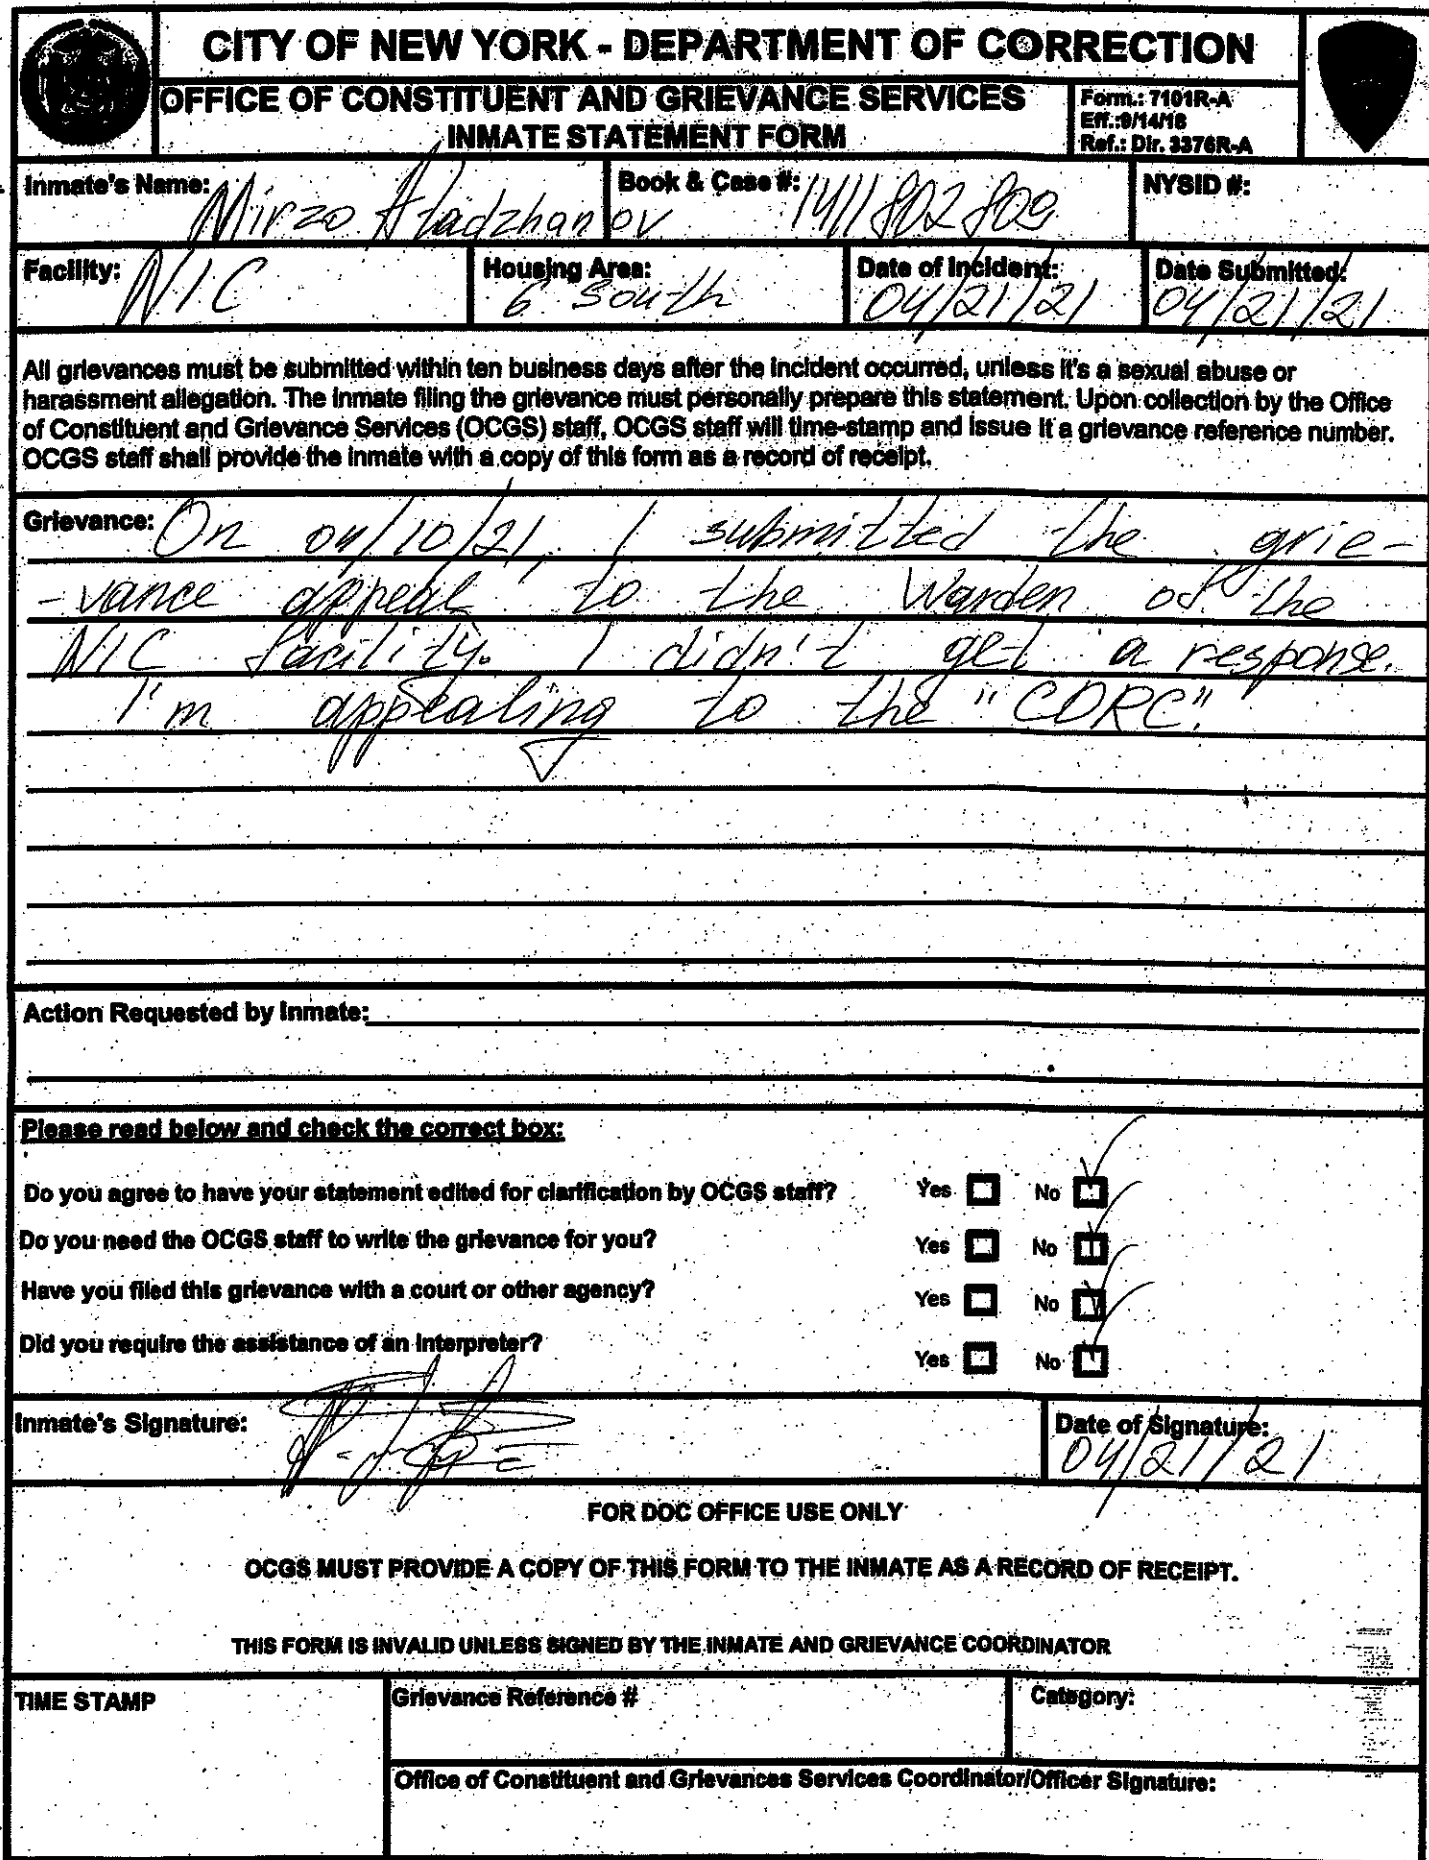 CITY OF NEW YORK - DEPARTMENT OF CORRECTION
OFFICE OF CONSTITUENT AND GRIEVANCE SERVICES
INMATE STATEMENT FORM
Form.: 7101R-A
Eff.:9/14/18
Ref.: Dir. 3376R-A
Inmate's Name: Mirzo Atadzhanov
Book & Case #: 1411802809
NYSID #:
Facility: NIC
Housing Area: 6 South
Date of Incident: 04/21/21
Date Submitted: 04/21/21
All grievances must be submitted within ten business days after the incident occurred, unless it's a sexual abuse or
harassment allegation. The inmate filing the grievance must personally prepare this statement. Upon collection by the Office
of Constituent and Grievance Services (OCGS) staff, OCGS staff will time-stamp and issue it a grievance reference number.
OCGS staff shall provide the inmate with a copy of this form as a record of receipt.
Grievance: On 04/10/21, I submitted the grie-
-vance appeal to the Warden of the
NIC facility. I didn't get a response.
I'm appealing to the "CORC".
Action Requested by Inmate:
Please read below and check the correct box:
Do you agree to have your statement edited for clarification by OCGS staff? Yes No
Do you need the OCGS staff to write the grievance for you? Yes No
Have you filed this grievance with a court or other agency? Yes No
Did you require the assistance of an interpreter? Yes No
Inmate's Signature:
Date of Signature: 04/21/21
FOR DOC OFFICE USE ONLY
OCGS MUST PROVIDE A COPY OF THIS FORM TO THE INMATE AS A RECORD OF RECEIPT.
THIS FORM IS INVALID UNLESS SIGNED BY THE INMATE AND GRIEVANCE COORDINATOR
TIME STAMP
Grievance Reference #
Category:
Office of Constituent and Grievances Services Coordinator/Officer Signature: